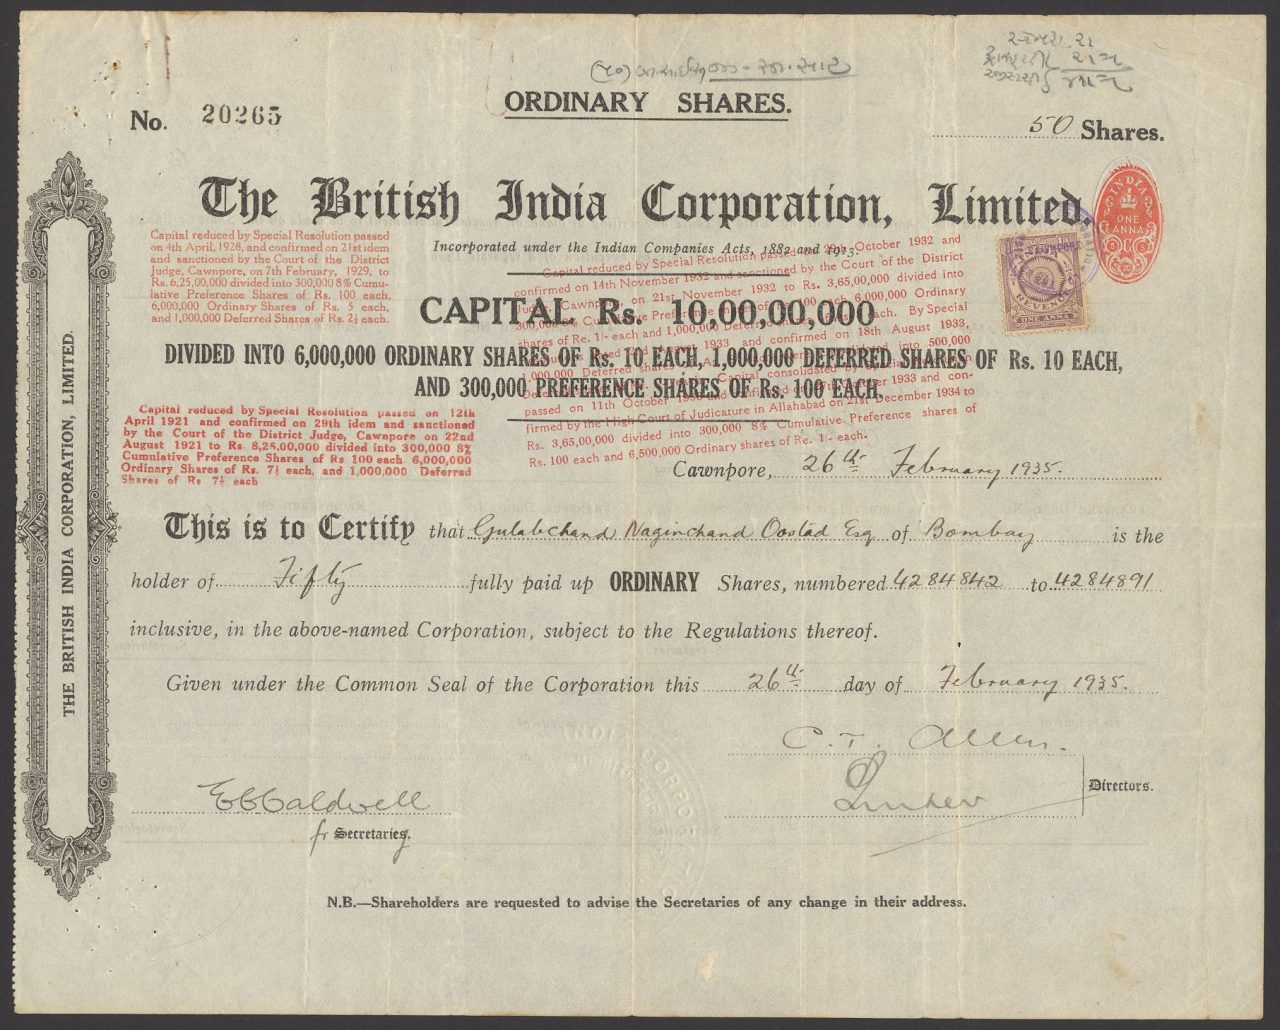 ORDINARY SHARES.
No. 20265
50 Shares.
The British India Corporation, Limited.
Incorporated under the Indian Companies Acts, 1882 and 1913.
INDIA
ONE
ANNA
INDIA
REVENUE
ONE ANNA
Capital reduced by Special Resolution passed
on 4th April, 1928, and confirmed on 21st idem
and sanctioned by the Court of the District
Judge, Cawnpore, on 7th February, 1929, to
Rs. 6,25,00,000 divided into 300,000 8% Cumu-
lative Preference Shares of Rs. 100 each,
6,000,000 Ordinary Shares of Rs. 5 each,
and 1,000,000 Deferred Shares of Rs. 2½ each.
CAPITAL Rs. 10,00,00,000
DIVIDED INTO 6,000,000 ORDINARY SHARES OF Rs. 10 EACH, 1,000,000 DEFERRED SHARES OF Rs. 10 EACH,
AND 300,000 PREFERENCE SHARES OF Rs. 100 EACH.
Capital reduced by Special Resolution passed on 28th October 1932 and
confirmed on 14th November 1932 and sanctioned by the Court of the District
Judge, Cawnpore, on 21st November 1932 to Rs. 3,65,00,000 divided into
300,000 8% Cumulative Preference Shares of Rs. 100 each, 6,000,000 Ordinary
shares of Re. 1/- each and 1,000,000 Deferred shares each. By Special
1933 and confirmed on 18th August 1933,
1,000,000 Deferred shares into 500,000
Capital consolidated by
passed on 11th October and confirmed on 1933 and con-
firmed by the High Court of Judicature in Allahabad on 21st December 1934 to
Rs. 3,65,00,000 divided into 300,000 8% Cumulative Preference shares of
Rs. 100 each and 6,500,000 Ordinary shares of Re. 1/- each.
Capital reduced by Special Resolution passed on 12th
April 1921 and confirmed on 29th idem and sanctioned
by the Court of the District Judge, Cawnpore on 22nd
August 1921 to Rs. 8,25,00,000 divided into 300,000 8%
Cumulative Preference Shares of Rs. 100 each 6,000,000
Ordinary Shares of Rs. 7½ each, and 1,000,000 Deferred
Shares of Rs 7½ each
Cawnpore, 26th February 1935.
This is to Certify that Gulabchand Naginchand Ooslad Esq of Bombay is the
holder of Fifty fully paid up ORDINARY Shares, numbered 4284842 to 4284891
inclusive, in the above-named Corporation, subject to the Regulations thereof.
Given under the Common Seal of the Corporation this 26th day of February 1935.
C. T. Allen.
Directors.
E C Caldwell
fr Secretaries.
N.B.—Shareholders are requested to advise the Secretaries of any change in their address.
THE BRITISH INDIA CORPORATION, LIMITED.